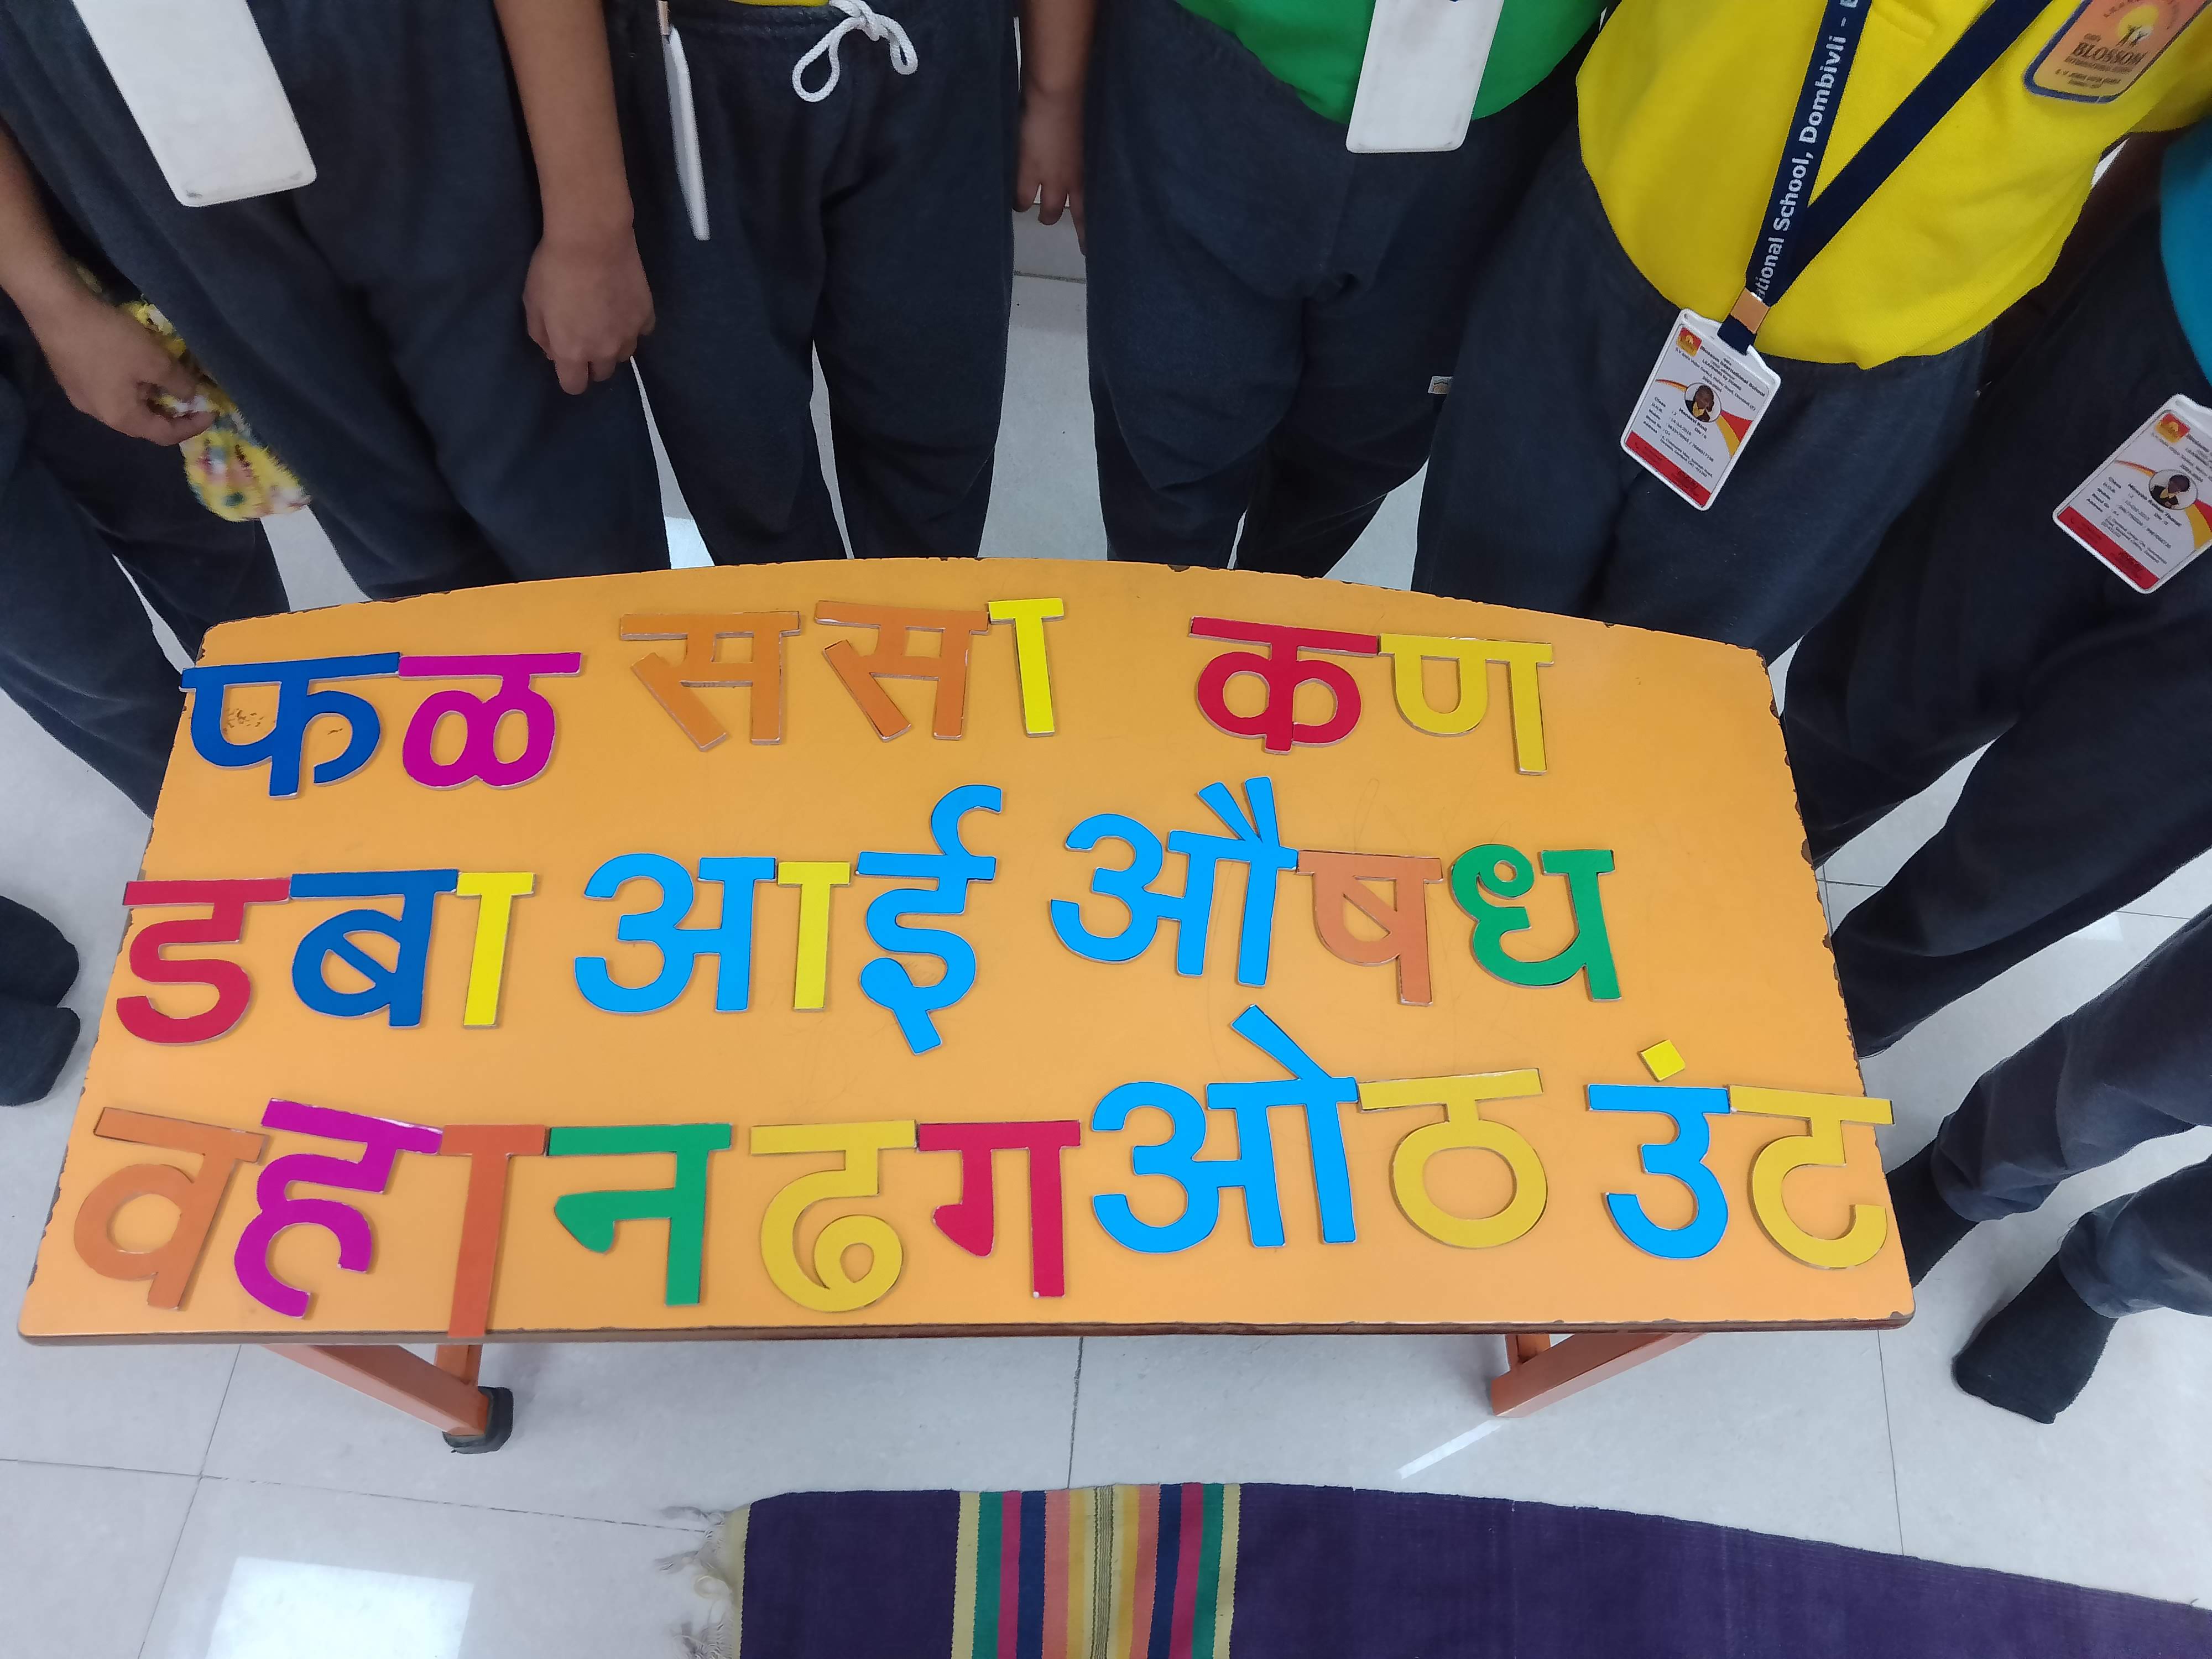 फळ ससा कण
डबा आई औषध
वहान ढग ओठ उंट
ational School, Dombivli -
BLOSSOM